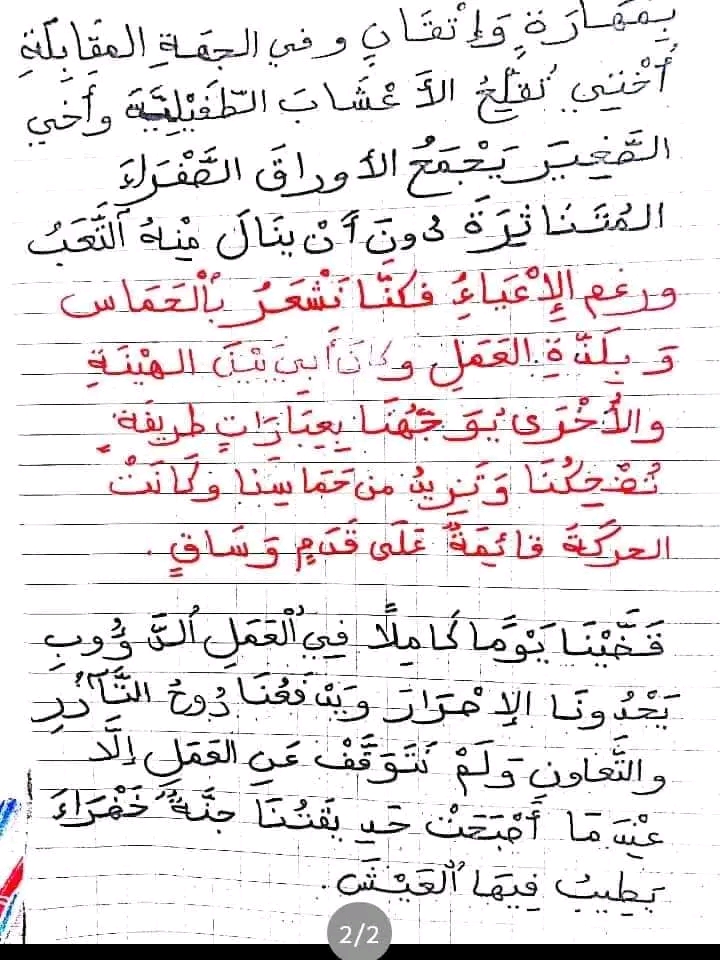 بِمَهَارَةٍ وَإِتْقَانٍ و في الجِهَةِ المقَابِلَةِ
أُخْتِي تُقَلِّعُ الأَعْشَابَ الطُّفَيْلِيَّةَ وأَخي
الصَّغِيرَ يَجْمَعُ الأوراقَ الصَّفْرَاءَ
المُتَنَاثِرَةَ دُونَ أَنْ ينَالَ مِنْهُ اَلتَّعَبُ
ورغم الإِعْيَاءُ فكنَّا نَشْعَرُ بِاُلْحَمَاس
وَ بِلَذَّةِ العَمَلِ وكانَ أَبي بَيْنَ الهيْنَةِ
والأُخْرَى يُوَجِّهُنَا بِعِبَارَاتٍ طريفَةٍ
تُضْحِكُنَا وَتَزِيدُ من حَمَاسِنَا وكَانَتْ
الحركَةَ قائِمَةٌ عَلَى قَدَمٍ وَسَاقٍ .
قَضَّيْنَا يَوْمًا كَامِلًا فِي اُلْعَمَلِ اُلدَّؤُوبِ
يَحْدُونَا الإِصْرَارَ وَيَدْفَعُنَا رُوحُ التَّآزُرِ
والتَّعَاونِ وَلَمْ نَتَوَقَّفْ عَنِ العَمَلِ إلَّا
عِنْدَ مَا أَصْبَحَتْ حَدِيقَتُنَا جنَّةٌ خَضْرَاءَ
يَطِيبُ فِيهَا اُلْعَيْشَ.
2/2